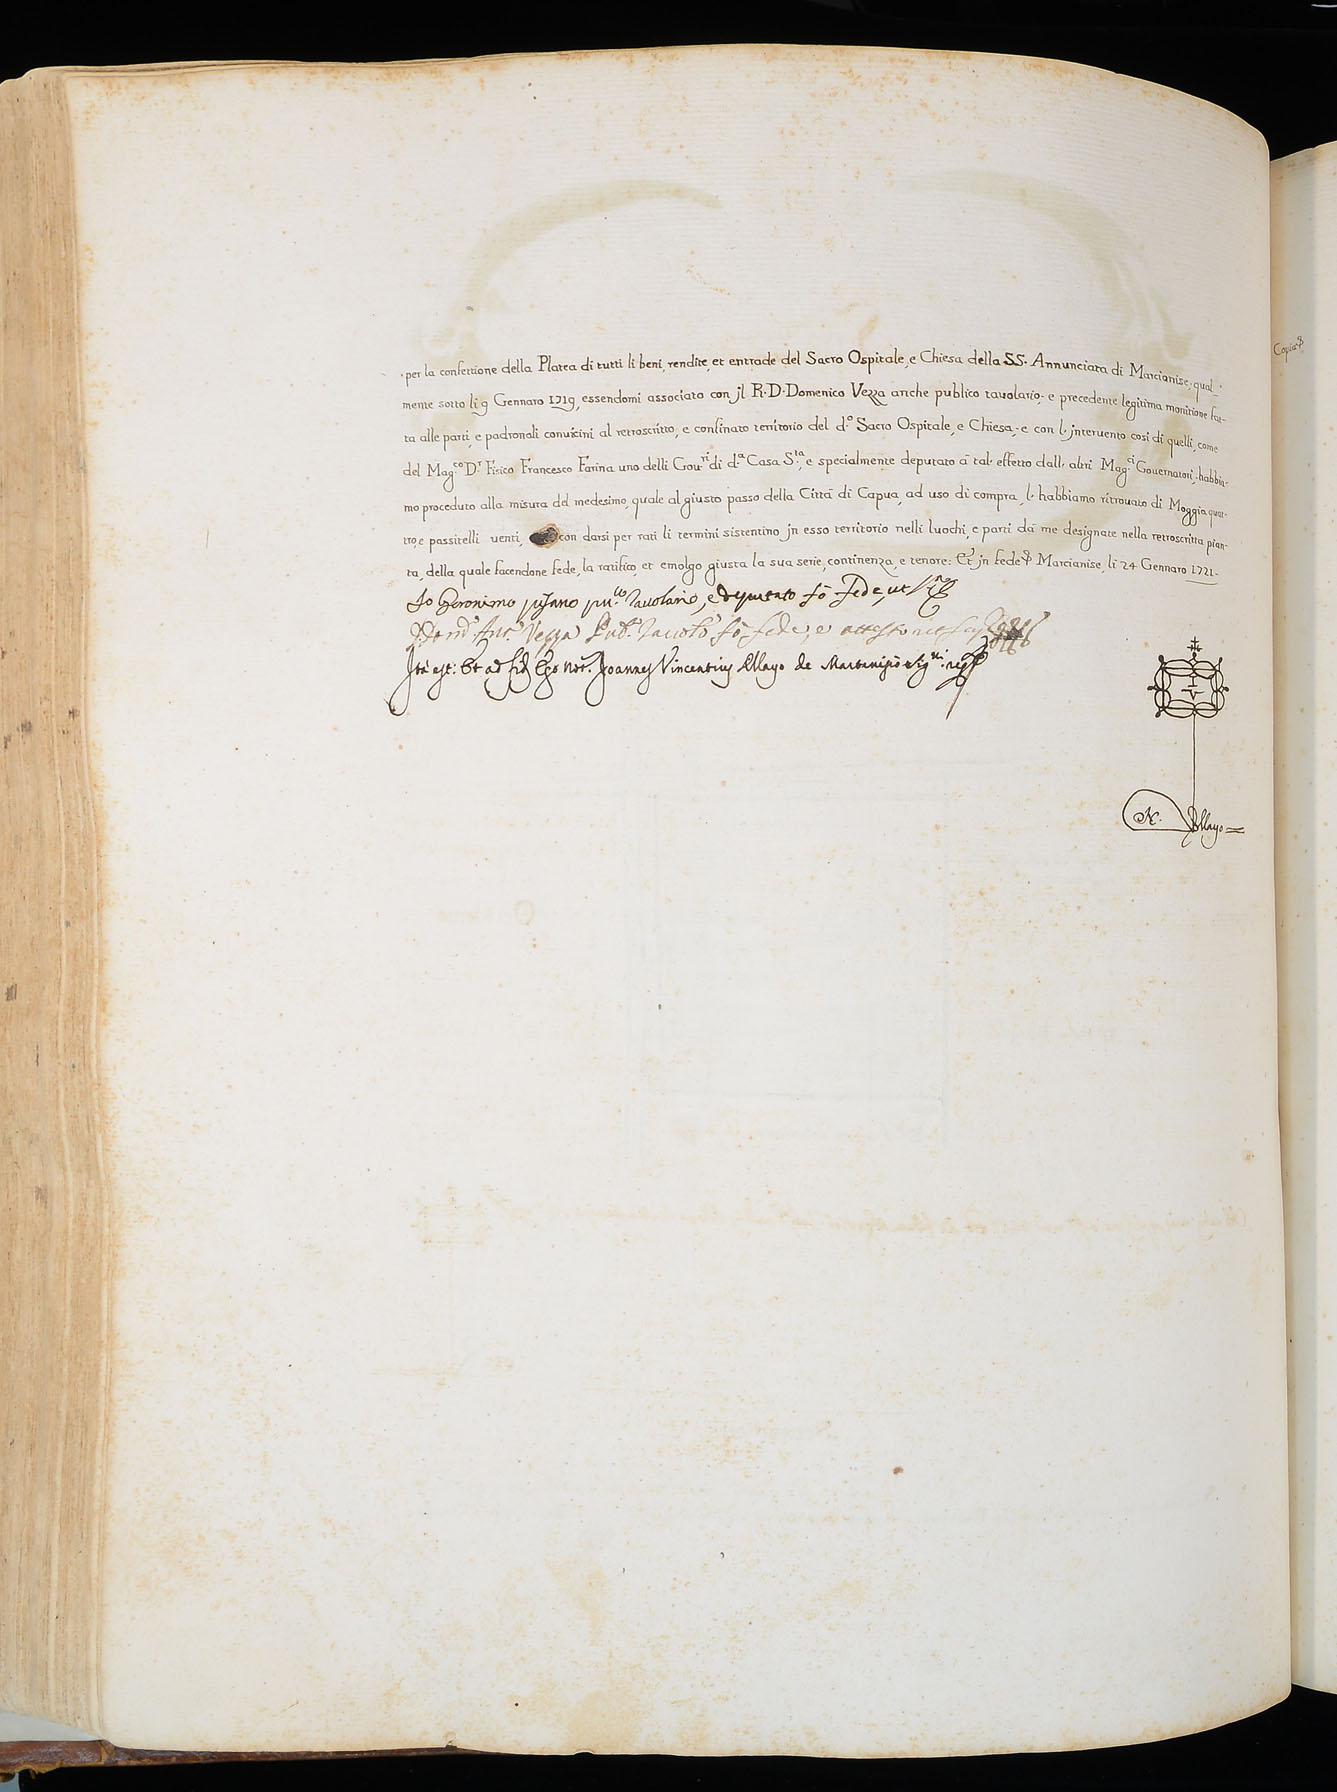 per la confettione della Platea di tutti li beni, rendite, et entrade del Sacro Ospitale, e Chiesa della SS. Annunciata di Marcianise, qual-
mente sotto li 9 Gennaro 1719, essendomi associato con jl R. D. Domenico Vezza anche publico tauolario, e precedente legitima monitione fat-
ta alle parti, e padronali conuicini al retroscritto, e confinato territorio del d.º Sacro Ospitale, e Chiesa, e con l' jnteruento così di quelli, come
del Mag.co D.r Fisico Francesco Farina uno delli Gou.ri di d.a Casa S.ta, e specialmente deputato à tal' effetto dall' altri Mag.ci Gouernatori, habbia-
mo proceduto alla misura del medesimo, quale al giusto passo della Città di Capua, ad uso di compra, l' habbiamo ritrouato di Moggia quat-
tro, e passitelli uenti, con darsi per rati li termini sistentino jn esso territorio nelli luochi, e parti dà me designate nella retroscritta pian-
ta, della quale facendone fede, la ratifico, et emolgo giusta la sua serie, continenza, e tenore: Et jn fede Marcianise, li 24 Gennaro 1721.
Io Geronimo pisano pu.co Tauolario, e deputato fò fede, ut
Ant.º Vezza Pub.º Tauol.º fò fede, e attesto
Ita est: Et ad fid. Ego Not.s Joannes Vincentius Allayo de Martianisio
N. Allayo
Copia